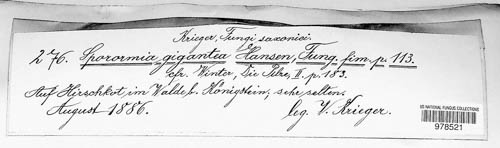 Krieger, Fungi saxonici.
276. Sporormia gigantea Hansen, Fung. fim. p. 113.
cfr. Winter, Die Pilze, II. p. 183.
Auf Hirschkot im Walde b. Königstein, sehr selten.
August 1886. leg. W. Krieger.
US NATIONAL FUNGUS COLLECTIONS
978521